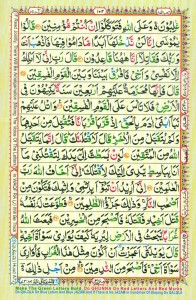 ١٠٣
غٰلِبُوْنَ ۚ وَ عَلَى اللّٰهِ فَتَوَكَّلُوْۤا اِنْ كُنْتُمْ مُّؤْمِنِیْنَ قَالُوْا
یٰمُوْسٰۤى اِنَّا لَنْ نَّدْخُلَهَاۤ اَبَدًا مَّا دَامُوْا فِیْهَا فَاذْهَبْ اَنْتَ
وَ رَبُّكَ فَقَاتِلَاۤ اِنَّا هٰهُنَا قٰعِدُوْنَ قَالَ رَبِّ اِنِّیْ لَاۤ اَمْلِكُ اِلَّا
نَفْسِیْ وَ اَخِیْ فَافْرُقْ بَیْنَنَا وَ بَیْنَ الْقَوْمِ الْفٰسِقِیْنَ قَالَ
فَاِنَّهَا مُحَرَّمَةٌ عَلَیْهِمْ اَرْبَعِیْنَ سَنَةً ۚ یَتِیْهُوْنَ فِی
الْاَرْضِ ؕ فَلَا تَاْسَ عَلَى الْقَوْمِ الْفٰسِقِیْنَ وَ اتْلُ عَلَیْهِمْ
نَبَاَ ابْنَیْ اٰدَمَ بِالْحَقِّ ۘ اِذْ قَرَّبَا قُرْبَانًا فَتُقُبِّلَ مِنْ اَحَدِهِمَا
وَ لَمْ یُتَقَبَّلْ مِنَ الْاٰخَرِ ؕ قَالَ لَاَقْتُلَنَّكَ ؕ قَالَ اِنَّمَا یَتَقَبَّلُ
اللّٰهُ مِنَ الْمُتَّقِیْنَ لَىِٕنْۢ بَسَطْتَّ اِلَیَّ یَدَكَ لِتَقْتُلَنِیْ مَاۤ اَنَا
بِبَاسِطٍ یَّدِیَ اِلَیْكَ لِاَقْتُلَكَ ۚ اِنِّیْۤ اَخَافُ اللّٰهَ رَبَّ
الْعٰلَمِیْنَ اِنِّیْۤ اُرِیْدُ اَنْ تَبُوْٓاَ بِاِثْمِیْ وَ اِثْمِكَ فَتَكُوْنَ مِنْ
اَصْحٰبِ النَّارِ ۚ وَ ذٰلِكَ جَزٰٓؤُا الظّٰلِمِیْنَ فَطَوَّعَتْ لَهٗ نَفْسُهٗ
قَتْلَ اَخِیْهِ فَقَتَلَهٗ فَاَصْبَحَ مِنَ الْخٰسِرِیْنَ فَبَعَثَ اللّٰهُ غُرَابًا
یَّبْحَثُ فِی الْاَرْضِ لِیُرِیَهٗ كَیْفَ یُوَارِیْ سَوْءَةَ اَخِیْهِ ؕ قَالَ
یٰوَیْلَتٰۤى اَعَجَزْتُ اَنْ اَكُوْنَ مِثْلَ هٰذَا الْغُرَابِ فَاُوَارِیَ
سَوْءَةَ اَخِیْ ۚ فَاَصْبَحَ مِنَ النّٰدِمِیْنَ مِنْ اَجْلِ ذٰلِكَ